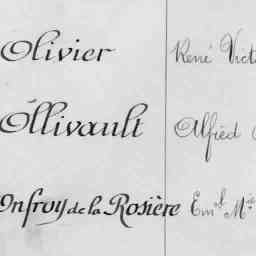 Olivier René Vict
Ollivault Alfred
Onfroy de la Rosière Em.l M.ie